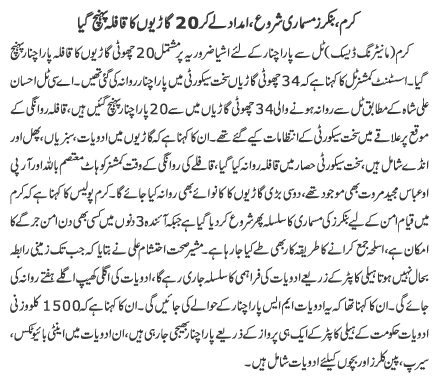 کرم، بنکرز مسماری شروع، امداد لے کر 20 گاڑیوں کا قافلہ پہنچ گیا
کرم (مانیٹرنگ ڈیسک) ٹل سے پاراچنار کے لئے اشیا ضروریہ پر مشتمل 20 چھوٹی گاڑیوں کا قافلہ پاراچنار پہنچ
گیا۔ اسسٹنٹ کمشنر ٹل کا کہنا ہے کہ 34 چھوٹی گاڑیاں سخت سیکورٹی میں پاراچنار روانہ کی گئی تھیں۔ اے سی ٹل احسان
علی شاہ کے مطابق ٹل سے روانہ ہونے والی 34 چھوٹی گاڑیوں میں سے 20 پاراچنار پہنچ گئیں ہیں، قافلہ روانگی کے
موقع پر علاقے میں سخت سیکورٹی کے انتظامات کیے گئے تھے۔ ان کا کہنا ہے کہ گاڑیوں میں ادویات، سبزیاں، پھل اور
انڈے شامل ہیں، سخت سیکورٹی حصار میں قافلہ روانہ کیا گیا، قافلے کی روانگی کے وقت کمشنر کوہاٹ معتصم باللہ اور آر پی
او عباس مجید مروت بھی موجود تھے، دوسری بڑی گاڑیوں کا کانوائے بھی روانہ کیا جائے گا۔ کرم پولیس کا کہنا ہے کہ کرم
میں قیام امن کے لیے بنکرز کی مسماری کا سلسلہ پھر شروع کر دیا گیا ہے جبکہ آئندہ 3 دنوں میں کسی بھی دن امن جرگے کا
امکان ہے، اسلحہ جمع کرانے کا طریقہ کار بھی طے کیا جا رہا ہے۔ مشیر صحت احتشام علی نے بتایا کہ جب تک زمینی رابطہ
بحال نہیں ہوتا ہیلی کاپٹر کے ذریعے ادویات کی فراہمی کا سلسلہ جاری رہے گا، ادویات کی اگلی کھیپ اگلے ہفتے روانہ کی
جائے گی۔ ان کا کہنا تھا کہ یہ ادویات ایم ایس پاراچنار کے حوالے کی جائیں گی۔ ان کا کہنا ہے کہ 1500 کلو وزنی
ادویات حکومت کے ہیلی کاپٹر کے ایک ہی پرواز کے ذریعے پاراچنار بھیجی جا رہی ہیں، ان ادویات میں اینٹی بائیوٹکس،
سیرپ، پین کلرز اور بچوں کیلئے ادویات شامل ہیں۔